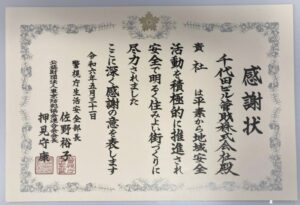 感謝状
千代田ビル管財株式会社殿
貴社は平素から地域安全
活動を積極的に推進され
安全で明るく住みよい街づくりに
尽力されました
ここに深く感謝の意を表します
令和六年五月三十一日
警視庁生活安全部長
佐野裕子
公益財団法人東京防犯協会連合会会長
押見守康